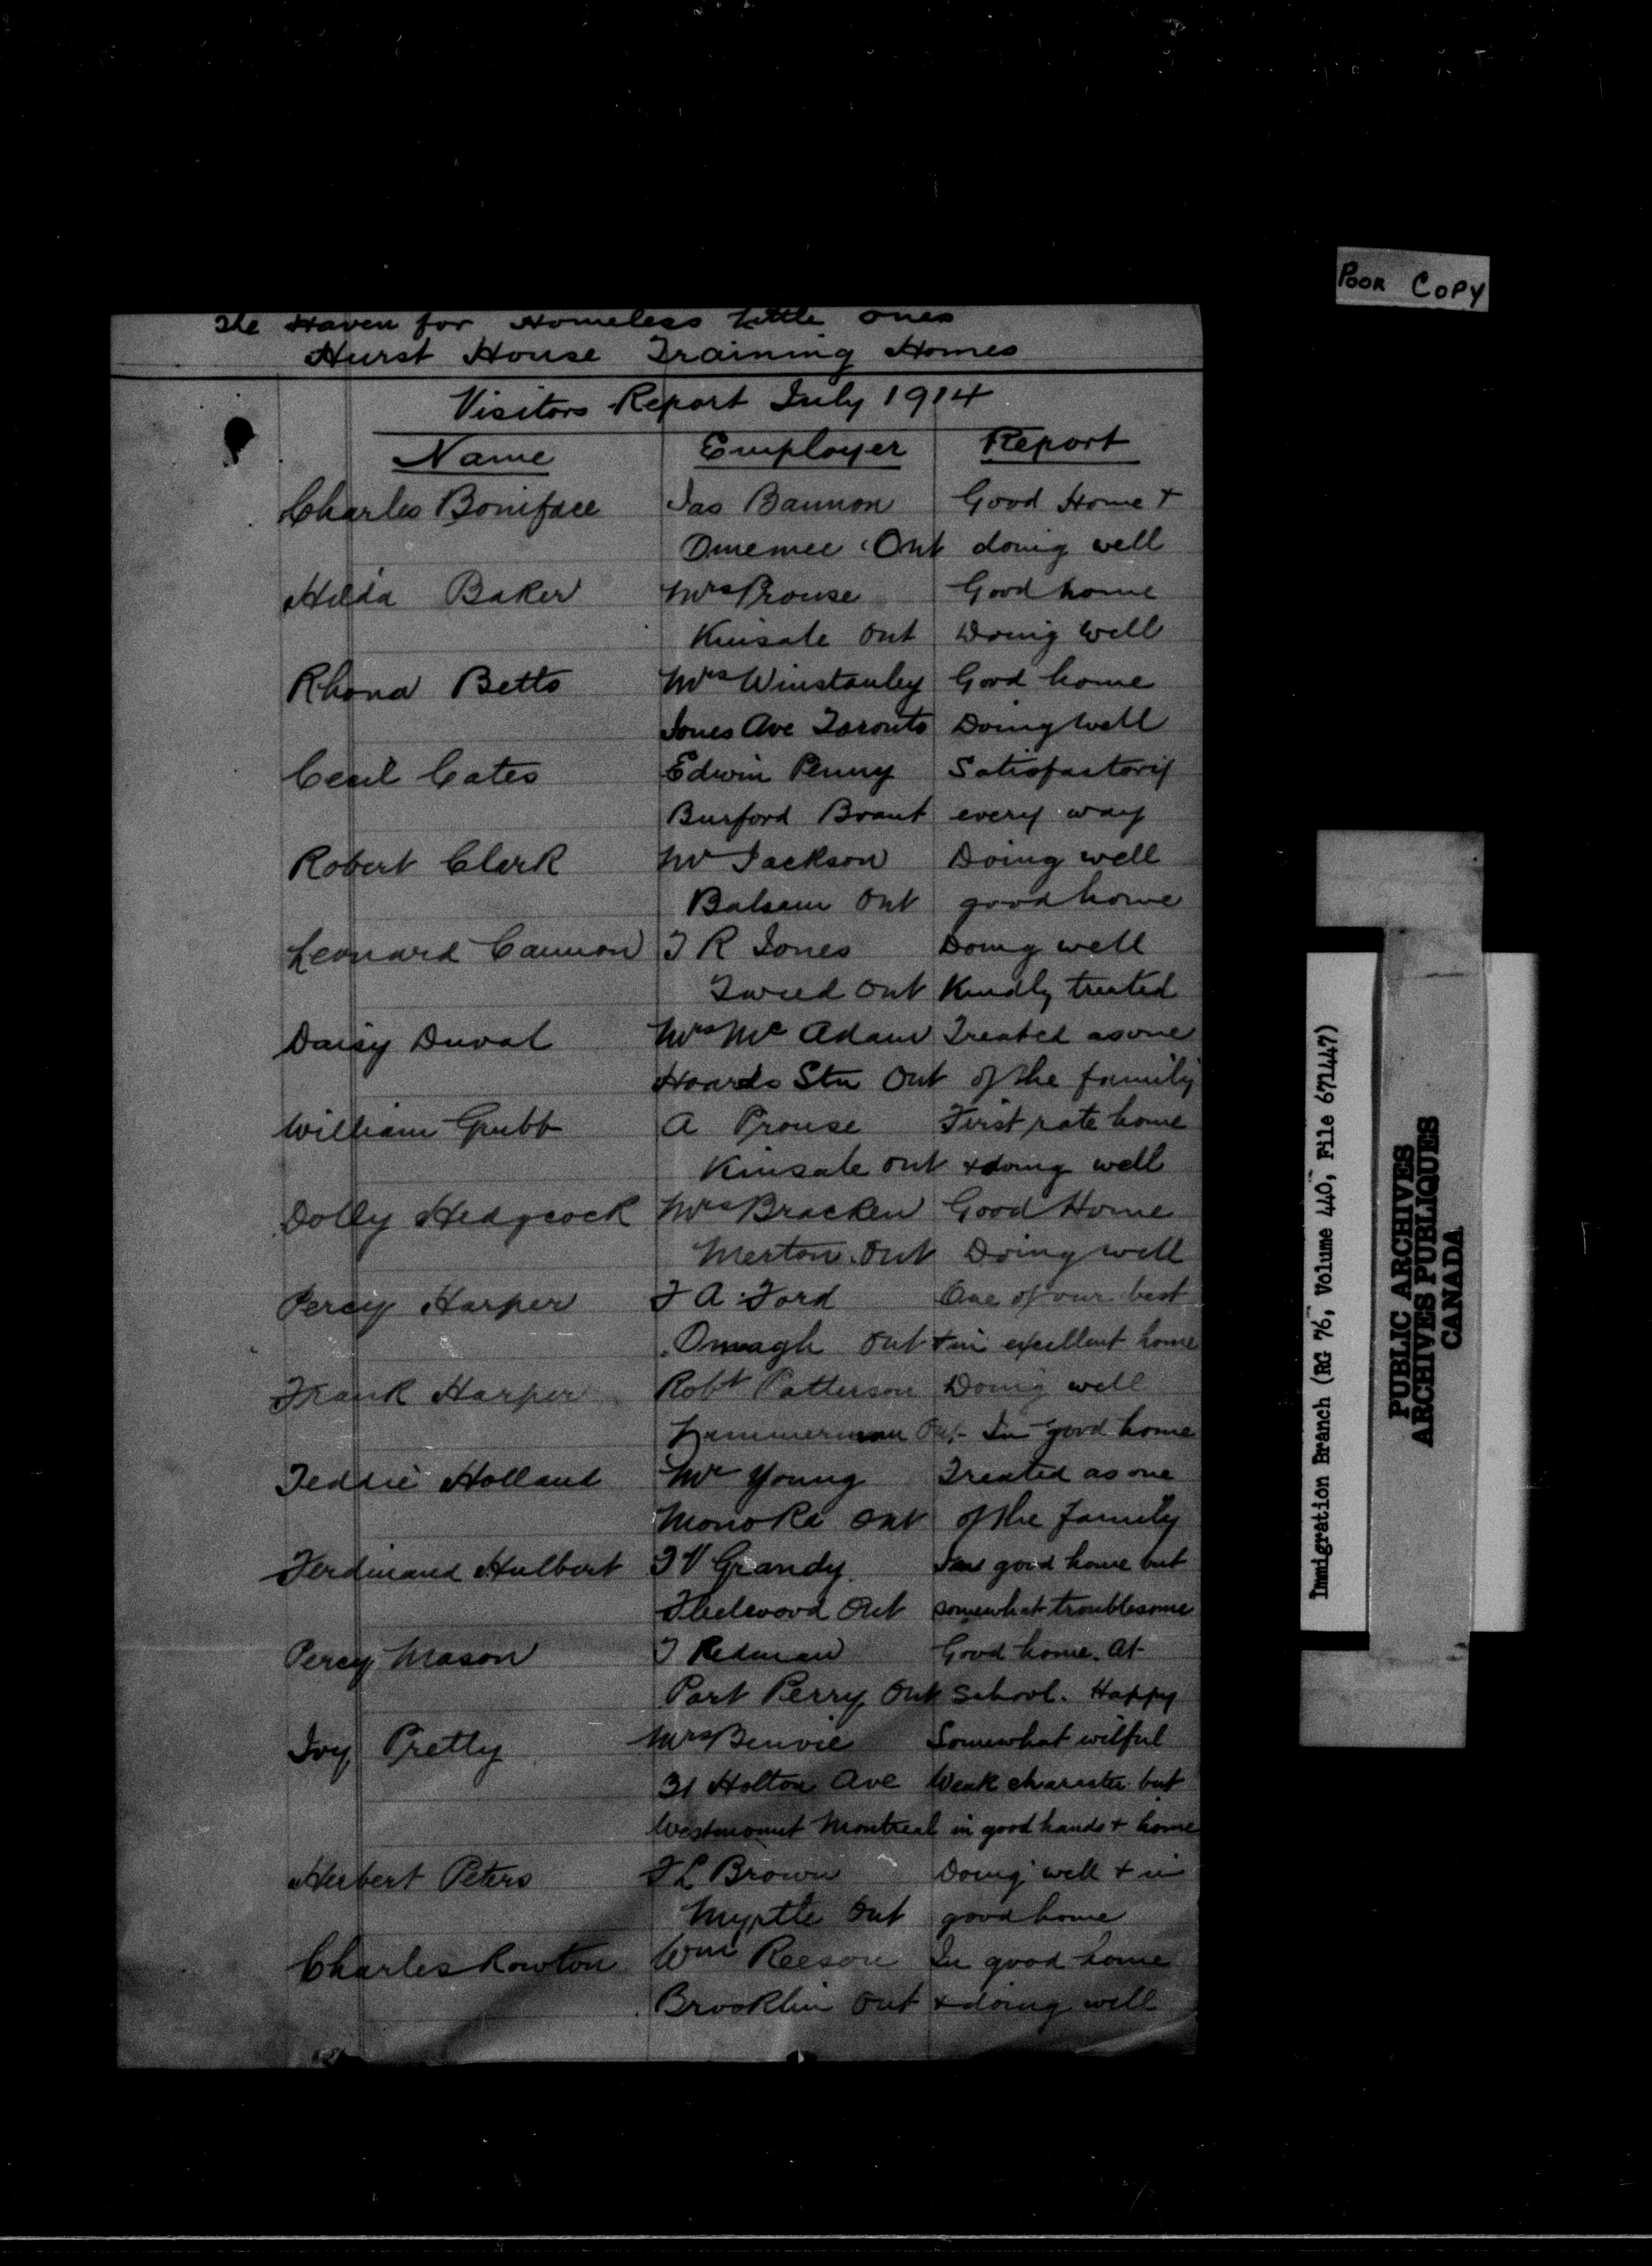 The Haven for Homeless Little Ones
Hurst House Training Homes
Visitors Report July 1914
Name Employer Report
Charles Boniface Jas Bannon Good Home +
Omemee Ont doing well
Hilda Baker Mrs Prouse Good home
Kinsale Ont Doing well
Rhona Betts Mrs Winstanley Good home
Jones Ave Toronto Doing well
Cecil Cates Edwin Penny Satisfactory
Burford Brant every way
Robert Clark Mr Jackson Doing well
Balsam Ont good home
Leonard Cannon T R Jones Doing well
Tweed Ont Kindly treated
Daisy Duval Mrs Mc Adam Treated as one
Hoards Stn Ont of the family
William Grubb A Prouse First rate home
Kinsale Ont + doing well
Dolly Hedgcock Mrs Bracken Good Home
Merton Ont Doing well
Percy Harper F A Ford One of our best
Omagh Ont + in excellent home
Frank Harper Robt Patterson Doing well
Zimmerman Ont In good home
Teddie Holland Mr Young Treated as one
Mono Rd Ont of the family
Ferdinand Hulbert T V Grandy good home but
Fleetwood Ont somewhat troublesome
Percy Mason T Redman Good home. At
Port Perry Ont School. Happy
Ivy Pretty Mrs Benvie Somewhat wilful
31 Holton Ave Weak character but
Westmount Montreal in good hands + home
Herbert Peters F L Brown Doing well + in
Myrtle Ont good home
Charles Rowton Wm Reeson In good home
Brooklin Ont + doing well
POOR COPY
Immigration Branch (RG 76, Volume 440, File 671447)
PUBLIC ARCHIVES
ARCHIVES PUBLIQUES
CANADA